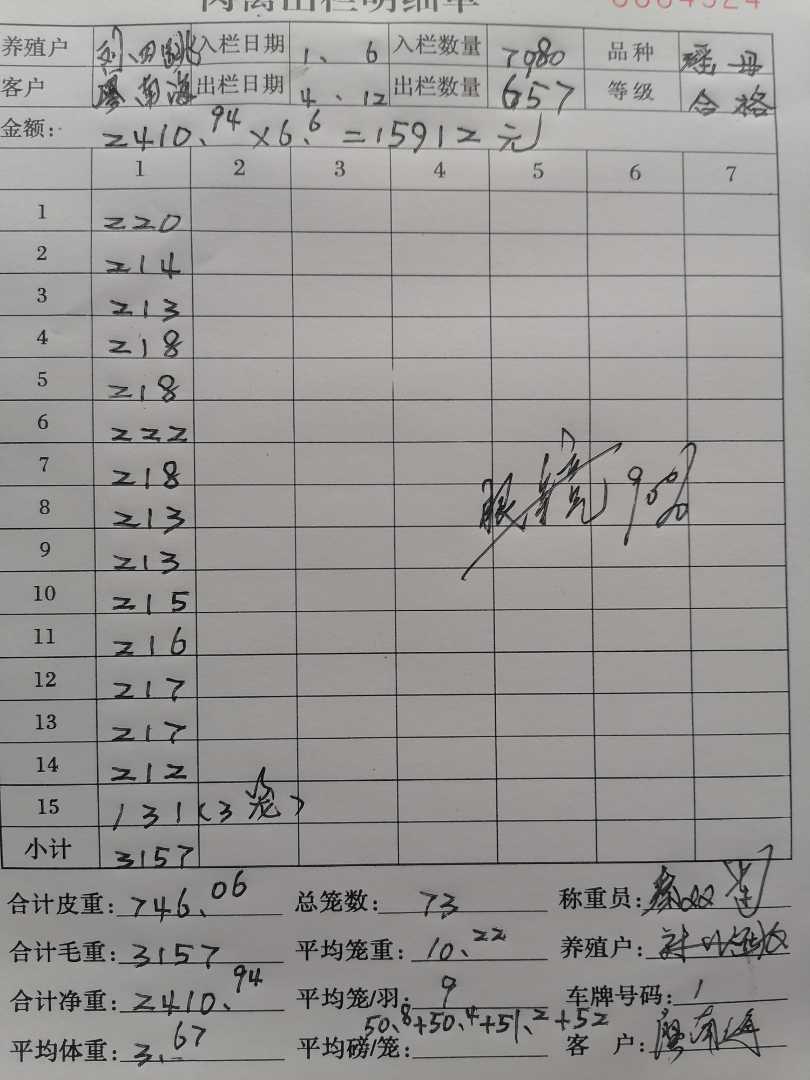 肉禽出栏明细单 0004324
养殖户 入栏日期 1、6 入栏数量 7980 品种 瑶母
客户 廖南海 出栏日期 4、12 出栏数量 657 等级 合格
金额: 2410.94×6.6=15912元
1 2 3 4 5 6 7
1 220
2 214
3 213
4 218
5 218
6 222
7 218
8 213
9 213
10 215
11 216
12 217
13 217
14 212
15 131(3笼)
小计 3157
眼睾亮90%
合计皮重: 746.06 总笼数: 73 称重员:
合计毛重: 3157 平均笼重: 10.22 养殖户:
合计净重: 2410.94 平均笼/羽: 9 车牌号码: 1
50.8+50.4+51.2+52
平均体重: 3.67 平均磅/笼: 客户: 廖南海